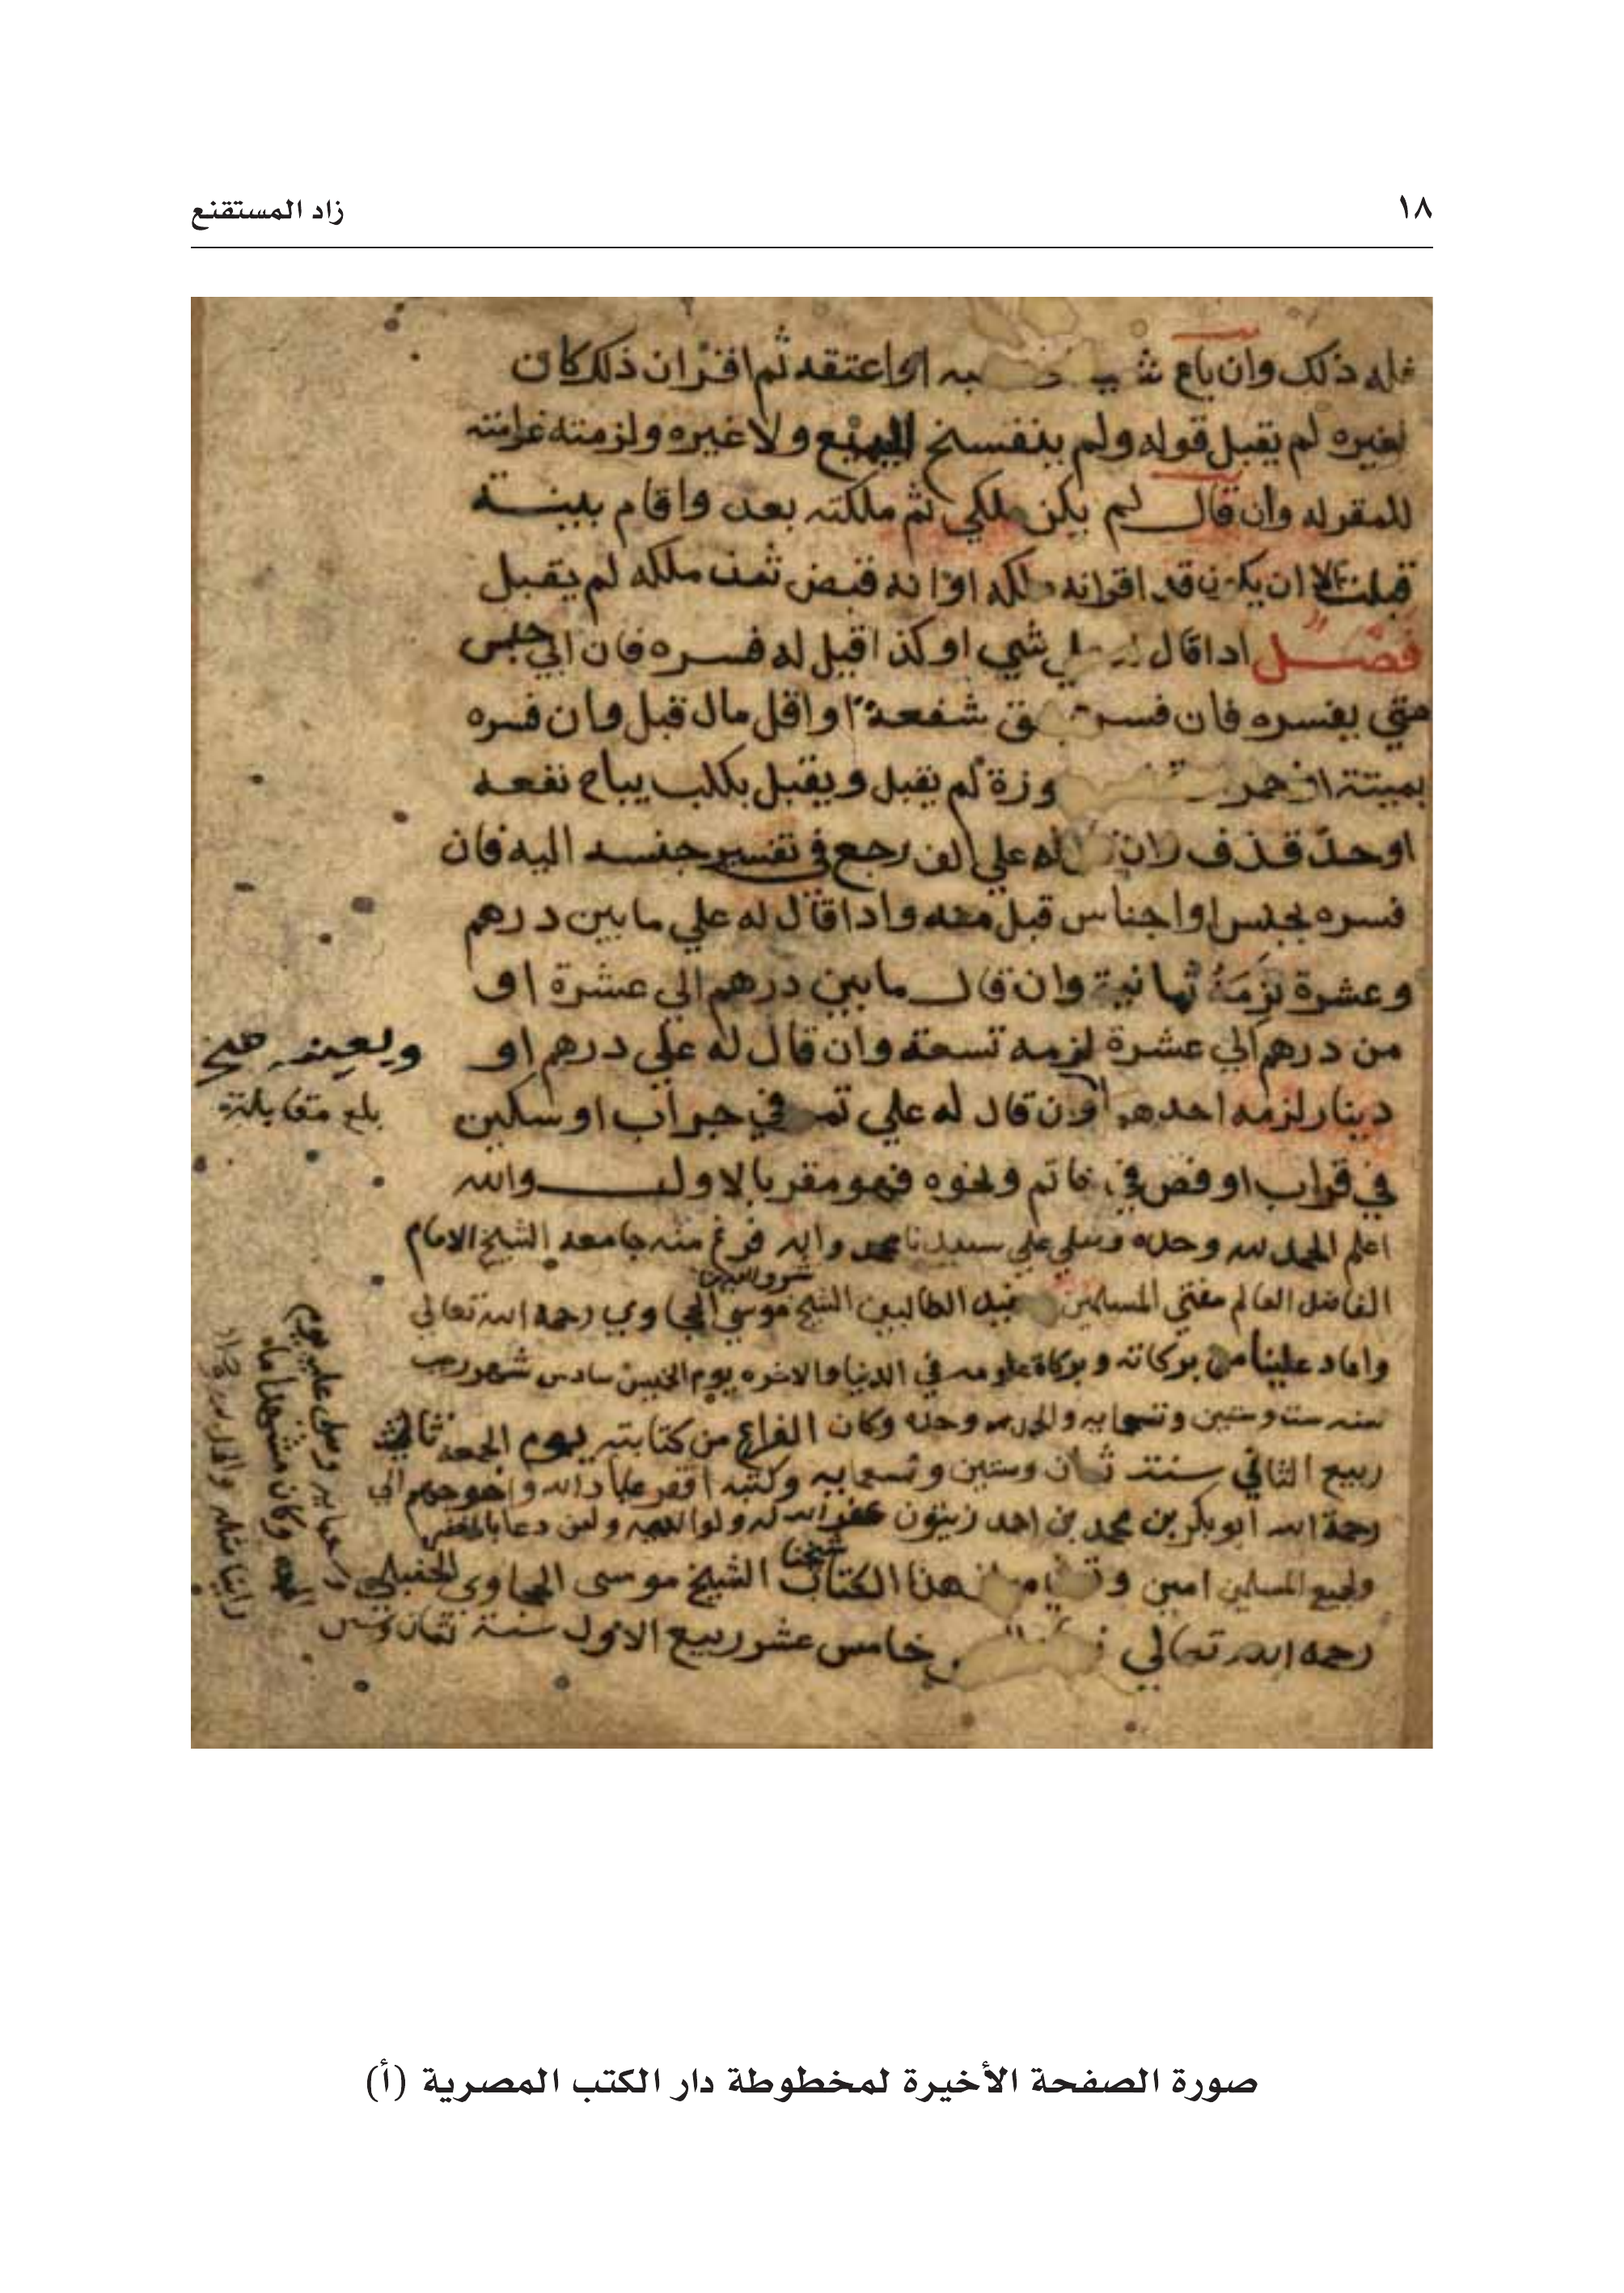 ١٨
زاد المستقنع
فله ذلك وان باع به او اعتقه ثم اقر ان ذلك كان
لغيره لم يقبل قوله ولم ينفسخ البيع ولا غيره ولزمته غرامته
للمقر له وان قال لم يكن ملكي ثم ملكته بعد واقام ببينة
قبلت الا ان يكون قد اقر انه ملكه او انه قبض ثمن ملكه لم يقبل
فصل اذا قال علي شي او كذا قيل له فسره فان ابي حبس
حتي يفسره فان فسره شفعة او اقل مال قبل وان فسره
بميتة او خمر لم يقبل ويقبل بكلب يباح نفعه
او حد قذف وان له علي الف رجع في تفسير جنسه اليه فان
فسره بجنس او اجناس قبل منه واذا قال له علي ما بين درهم
وعشرة لزمه ثمانية وان قال ما بين درهم الي عشرة او
من درهم الي عشرة لزمه تسعة وان قال له علي درهم او
دينار لزمه احدهما وان قال له علي تمر في جراب او سكين
في قراب او فص في خاتم ونحوه فهو مقر بالاول والله
اعلم الحمد لله وحده وصلي علي سيدنا محمد واله فرغ منه جامعه الشيخ الامام
الفاضل العالم مفتي المسلمين الطالبين الشيخ شرف الدين موسي الحجاوي رحمه الله تعالي
واعاد علينا من بركاته وبركاة علومه في الدنيا والاخره يوم الخميس سادس شهر رجب
سنه ست وستين وتسعمايه والحمد لله وحده وكان الفراغ من كتابته يوم الجمعه ثالث
ربيع الثاني سنت ثمان وستين وتسعمايه وكتبه افقر عباد الله واحوجهم الي
رحمة الله ابو بكر بن محمد بن احمد زيتون غفر الله له ولوالديه ولمن دعا بالمغفره
ولجميع المسلمين امين هذا الكتاب شيخنا الشيخ موسى الحجاوي الحنبلي
رحمه الله تعالي خامس عشر ربيع الاول سنت ثمان وستين
ويعينه صح
بلغ مقابلة
صورة الصفحة الأخيرة لمخطوطة دار الكتب المصرية (أ)